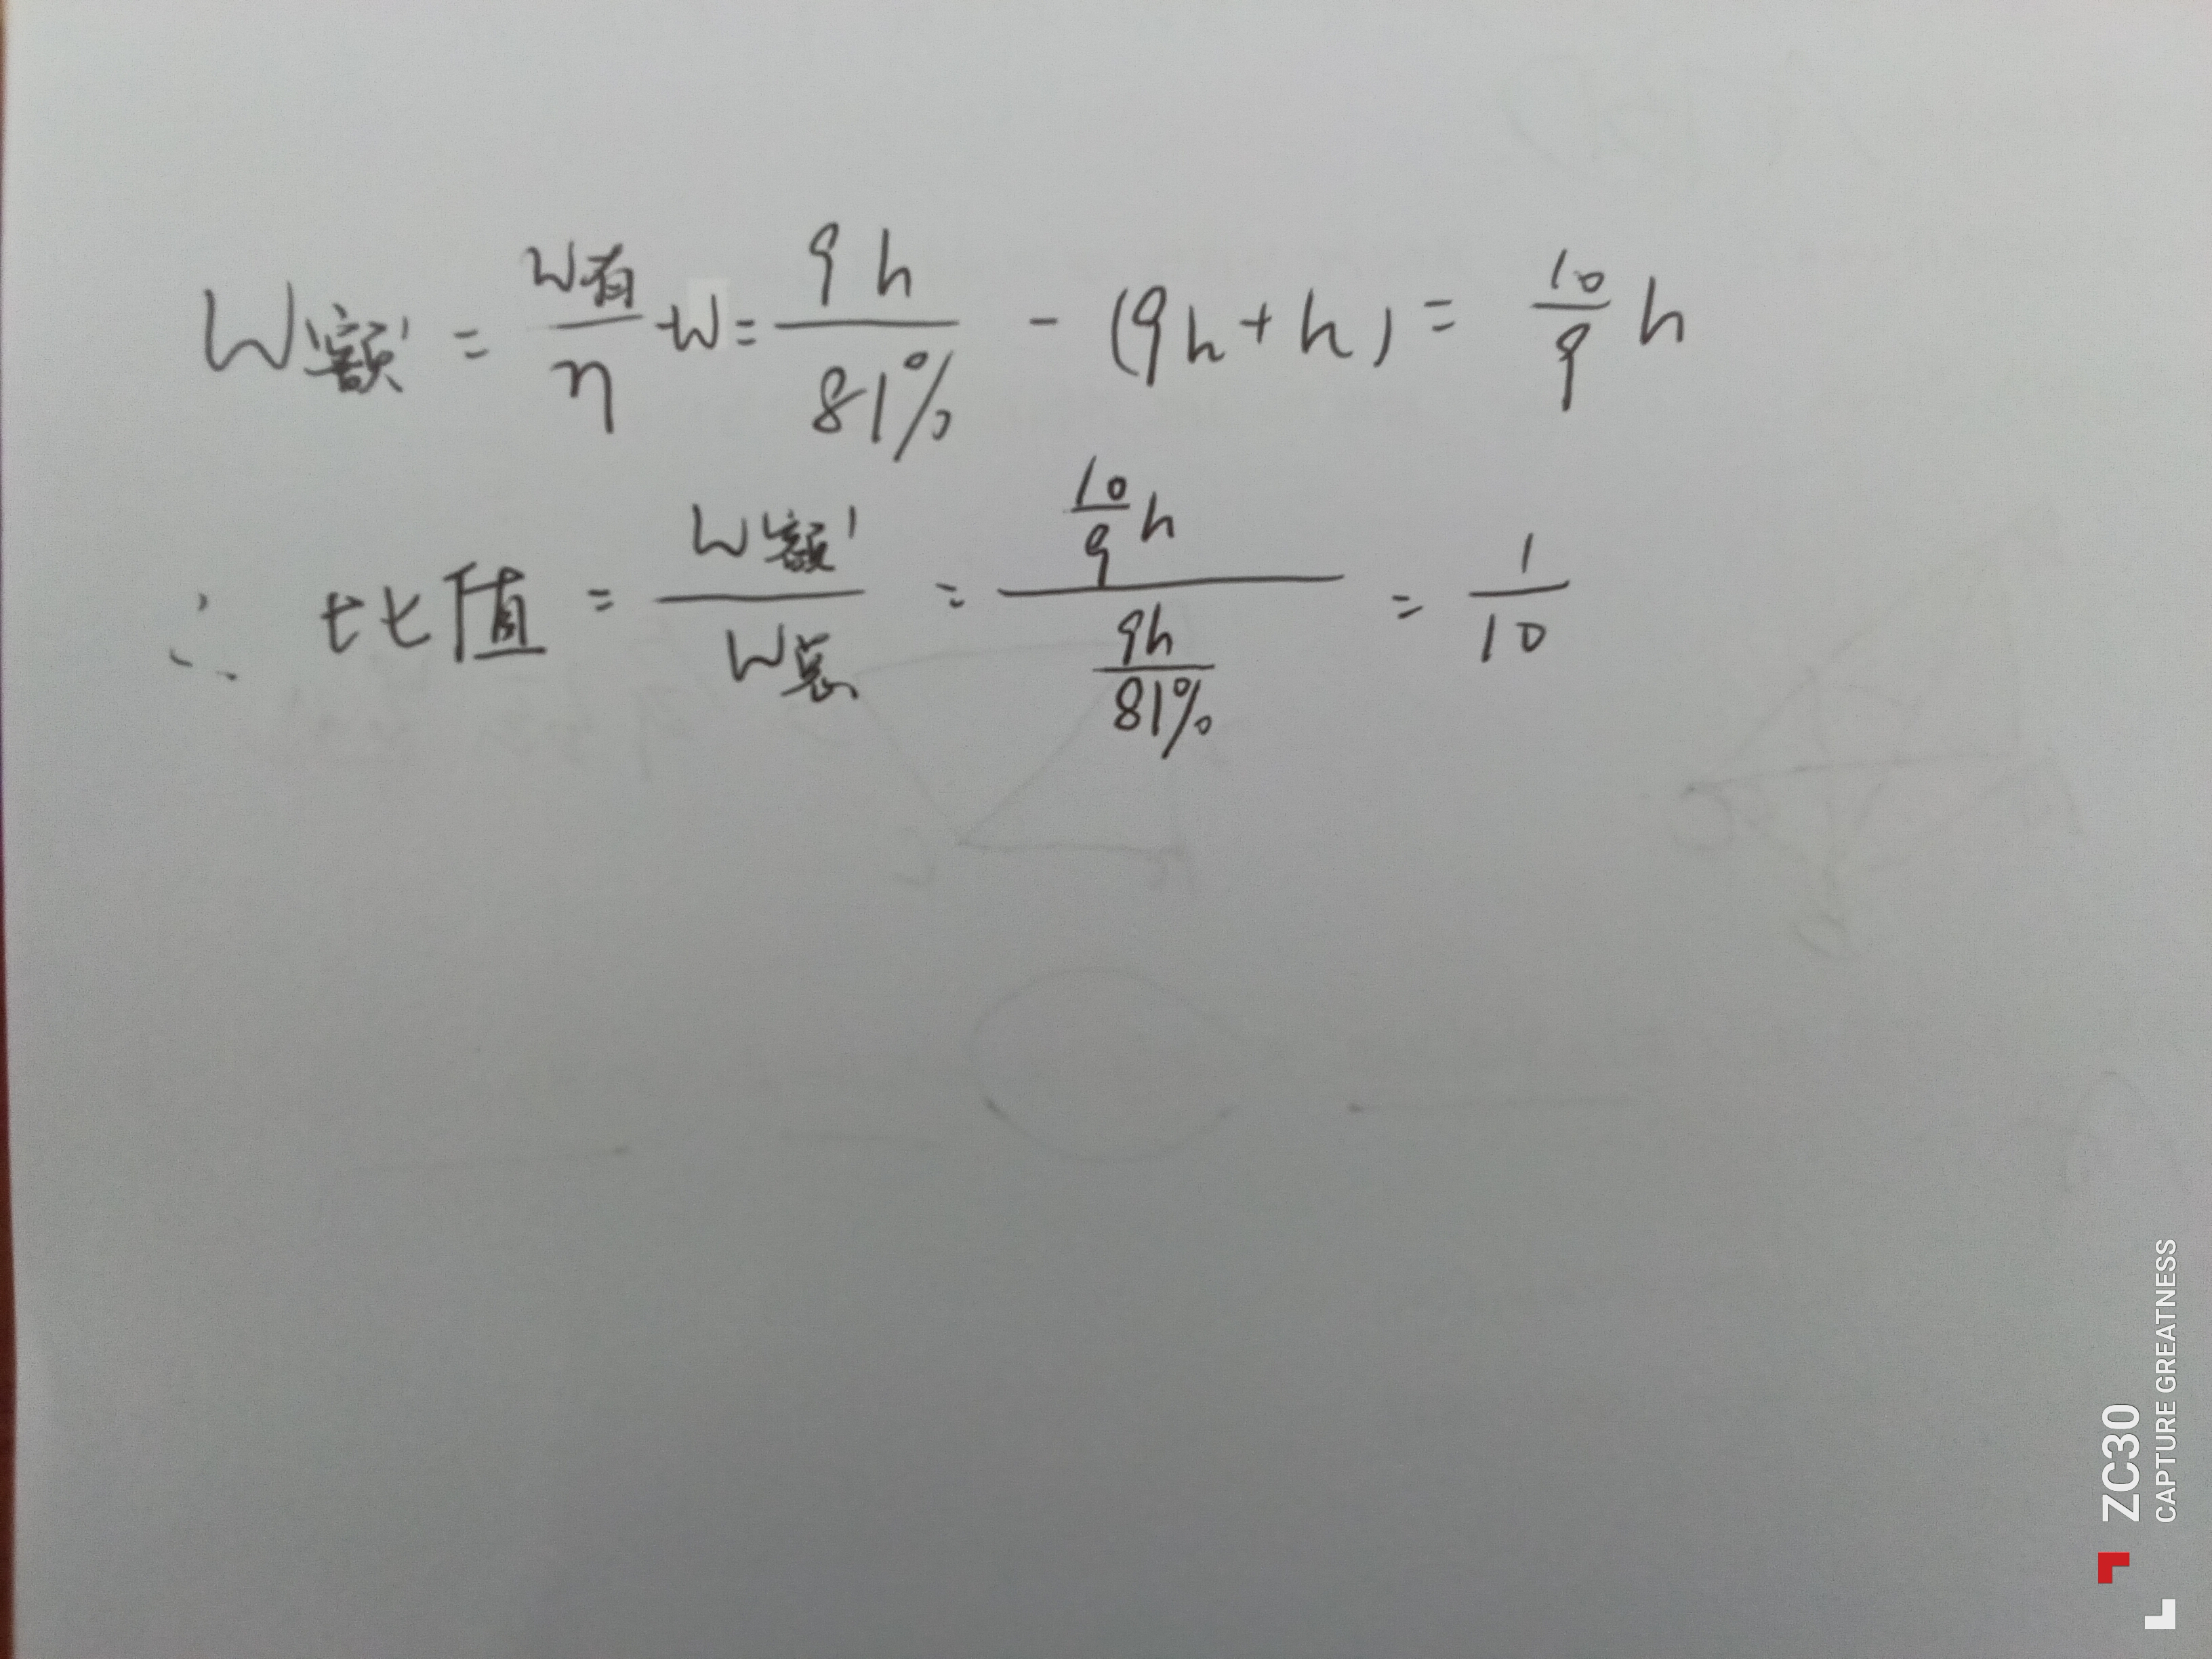 W额' = W有/η - W = 9h/81% - (9h + h) = 10/9 h
∴ 比值 = W额'/W总 = (10/9 h)/(9h/81%) = 1/10
ZC30
CAPTURE GREATNESS